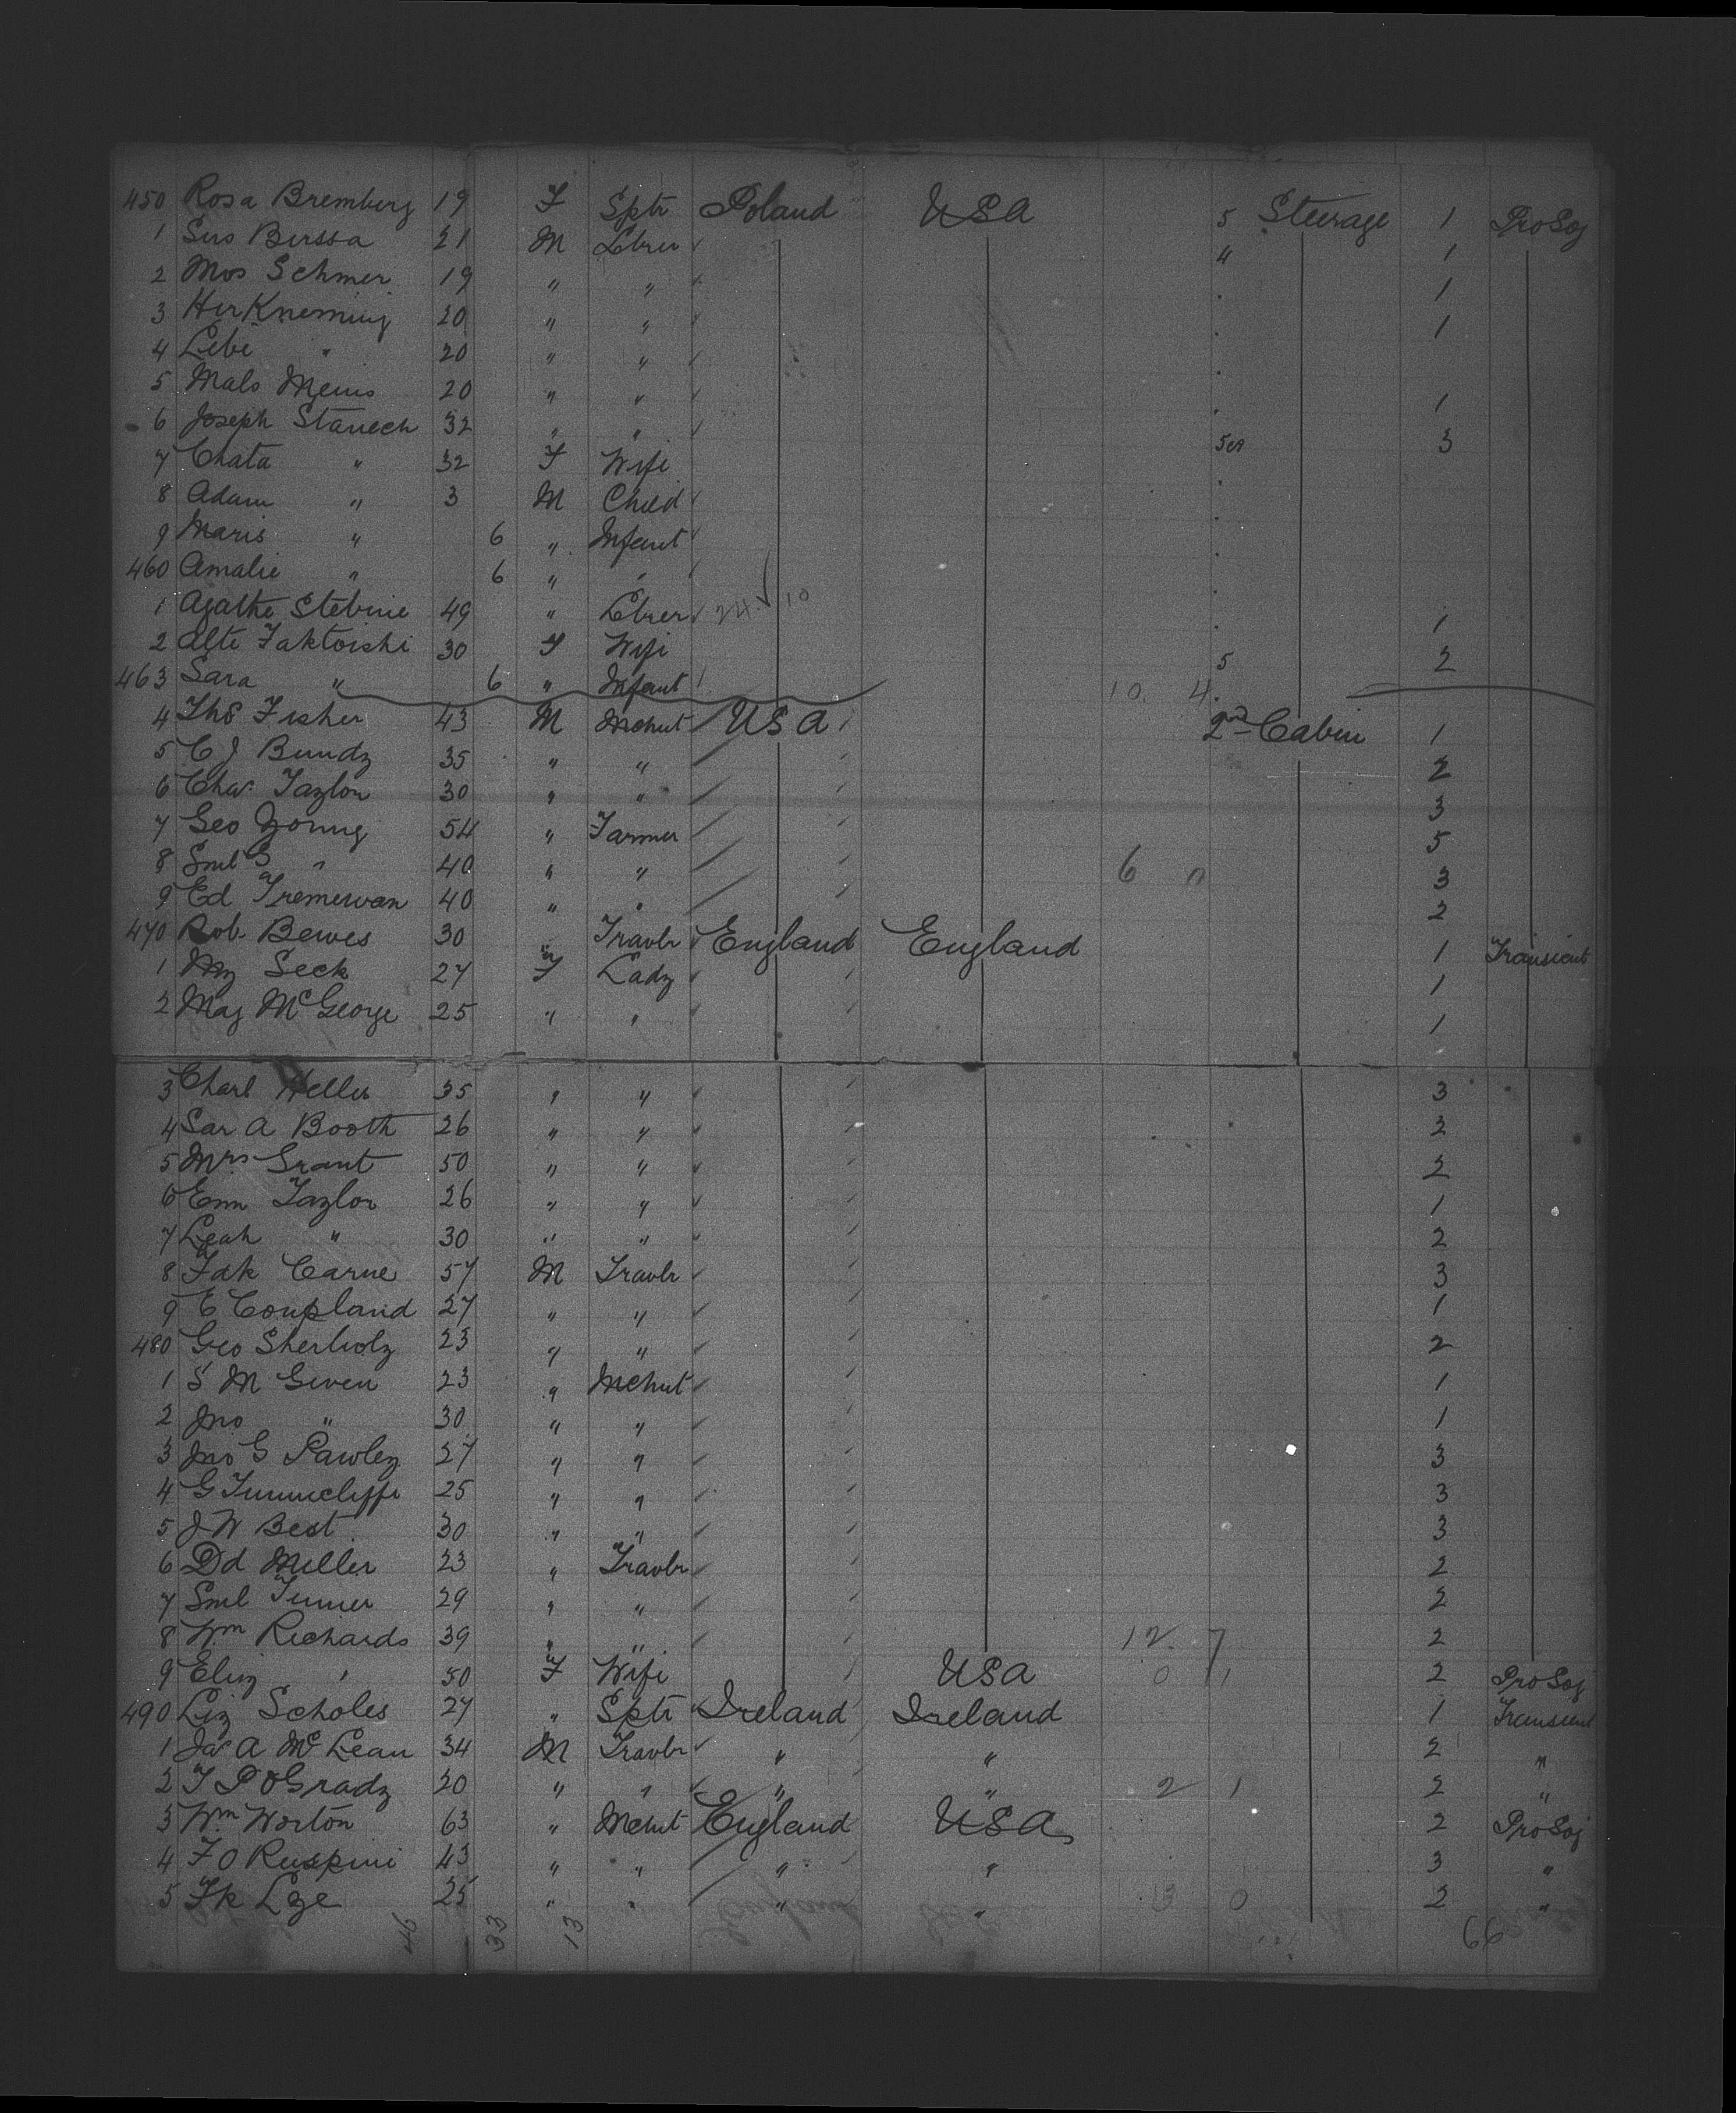 450 Rosa Bremberg 19 F Sptr Poland USA 5 Steerage 1 ProSoj
1 Sus Berssa 21 M Lbrer 4 1
2 Mos Schmer 19 " " 1
3 Her Kneming 20 " " 1
4 Lebe " 20 " "
5 Mals Meins 20 " " 1
6 Joseph Stanech 32 " " 5en 3
7 Chata " 32 F Wife
8 Adam " 3 M Child
9 Maris " 6 " Infant
460 Amalie " 6 " "
1 Agathe Stebinie 49 " Lbrer 24 10 1
2 Alte Faktorshi 30 F Wife 5 2
463 Sara " 6 " Infant 10. 4.
4 Ths Fisher 43 M Mchnt USA 2nd Cabin 1
5 C J Bundz 35 " " 2
6 Chas Tazlor 30 " " 3
7 Geo Young 54 " Farmer 5
8 Sml G " 40 " " 6 0 3
9 Ed Tremewan 40 " " 2
470 Rob Bewes 30 " Travlr England England 1 Transient
1 Mz Seck 27 F Ladz 1
2 Mag McGeorge 25 " " 1
3 Charl Heller 35 " " 3
4 Sar A Booth 26 " " 2
5 Mrs Grant 50 " " 2
6 Em Tazlor 26 " " 1
7 Leah " 30 " " 2
8 Fdk Carne 57 M Travlr 3
9 E Coupland 27 " " 1
480 Geo Sherholz 23 " " 2
1 S M Given 23 " Mchnt 1
2 Jno " 30 " " 1
3 Jno G Pawlez 27 " " 3
4 G Tunnicliffe 25 " " 3
5 J W Best 30 " " 3
6 Dd Miller 23 " Travlr 2
7 Sml Turner 29 " " 2
8 Wm Richards 39 " " 12. 7 2
9 Eliz " 50 F Wife USA 0 1 2 ProSoj
490 Liz Scholes 27 " Sptr Ireland Ireland 1 Transient
1 Jas A McLean 34 M Travlr " " 2 "
2 T P OGradz 20 " " " " 2 1 2 "
3 Wm Worton 63 " Mchnt England USA 2 ProSoj
4 F O Ruspini 43 " " " " 3 "
5 Fk Lze 25 " " " " 3 0 2 "
46 33 13 66